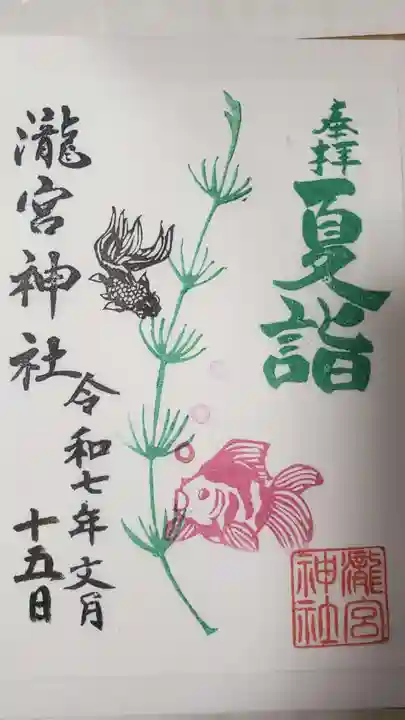 奉拝
夏詣
瀧宮神社
令和七年文月
十五日
瀧宮
神社